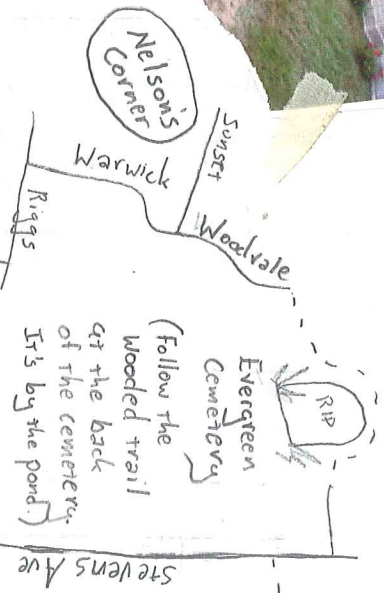 Nelson's
Corner
Sunset
Warwick
Woodvale
Riggs
RIP
Evergreen
Cemetery
(Follow the
wooded trail
at the back
of the cemetery.
It's by the pond)
Stevens Ave